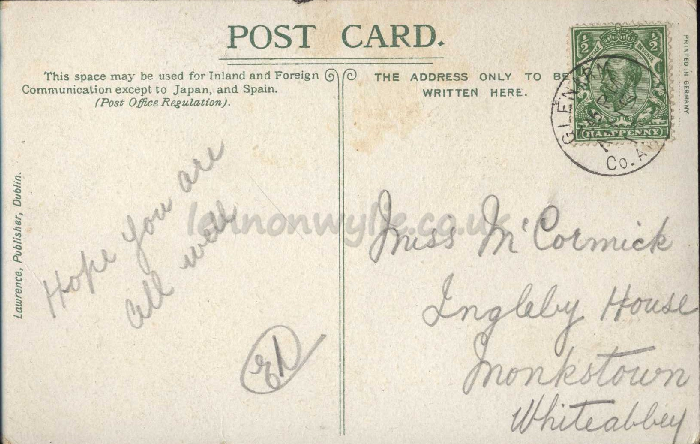 POST CARD.
This space may be used for Inland and Foreign
Communication except to Japan, and Spain.
(Post Office Regulation).
THE ADDRESS ONLY TO BE
WRITTEN HERE.
½ ½
HALFPENNY
Co. A
PRINTED IN GERMANY
Lawrence, Publisher, Dublin.
Hope you are
all well
lennonwylie.co.uk
Miss McCormick
Ingleby House
Monkstown
Whiteabbey